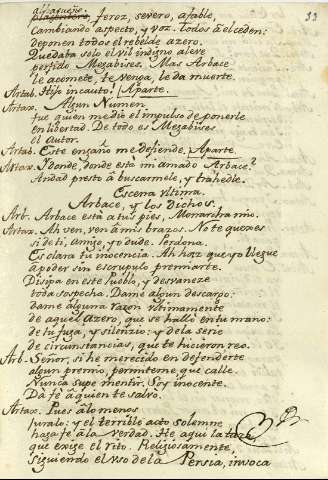 33
feroz, severo, afable,
Cambiando aspecto, y voz. Todos â el ceden:
deponen todos el rebelde azero.
Quedaba solo el vil indigno aleve
perfido Megabises. Mas Arbace
le acomete, te venga, le da muerte.
Artab. Hijo incauto! (Aparte.
Artax. Algun Numen
fue quien me diô el impulso de ponerle
en libertad. De todo es Megabises
el Autor.
Artab. Este engaño me defiende. (Aparte.
Artax. Y donde, donde está mi amado Arbace?
Andad presto â buscarmele, y trahedle.
Escena ultima.
Arbace, y los Dichos.
Arb. Arbace está a tus pies, Monarcha mio.
Artax. Ah ven, ven â mis brazos. No te quexes
si de ti, amigo, yo dudé. Perdona.
Es clara tu inocencia. Ah haz que yo llegue
a poder sin escrupulo premiarte.
Disipa en este Pueblo, y desvaneze
toda sospecha. Dame algun descargo:
dame alguna razon ultimamente
de aquel Azero, que se hallô en tu mano:
de tu fuga, y silenzio: y de la serie
de circunstancias, que te hicieron reo.
Arb. Señor, si he merecido en defenderte
algun premio, permiteme que calle.
Nunca supe mentir. Soy inocente.
Da fê â quien te salvó.
Artax. Pues â lo menos
juralo: y el terrible acto solemne
haga fê â la verdad. He aqui la taza
que exige el rito. Religiosamente,
siguiendo el uso de la Persia, invoca